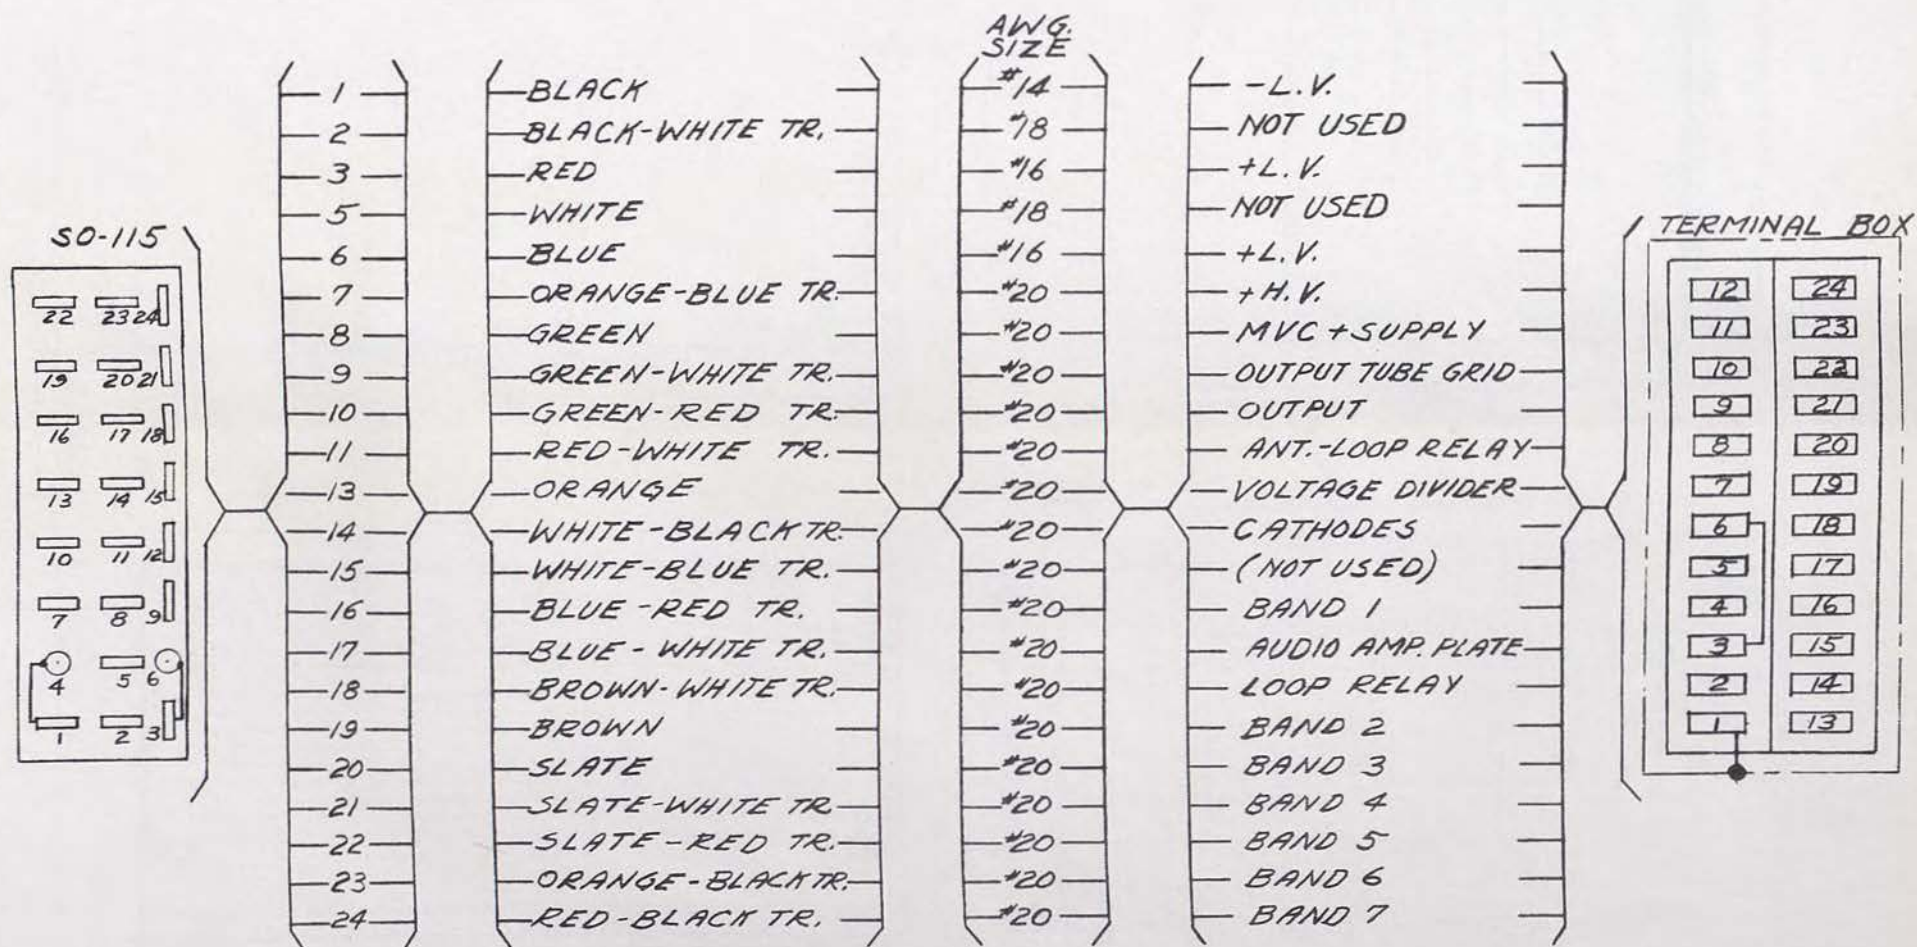 AWG.
SIZE
1 BLACK #14 -L.V.
2 BLACK-WHITE TR. #18 NOT USED
3 RED #16 +L.V.
5 WHITE #18 NOT USED
6 BLUE #16 +L.V.
7 ORANGE-BLUE TR. #20 +H.V.
8 GREEN #20 MVC+SUPPLY
9 GREEN-WHITE TR. #20 OUTPUT TUBE GRID
10 GREEN-RED TR. #20 OUTPUT
11 RED-WHITE TR. #20 ANT.-LOOP RELAY
13 ORANGE #20 VOLTAGE DIVIDER
14 WHITE-BLACK TR. #20 CATHODES
15 WHITE-BLUE TR. #20 (NOT USED)
16 BLUE-RED TR. #20 BAND 1
17 BLUE-WHITE TR. #20 AUDIO AMP. PLATE
18 BROWN-WHITE TR. #20 LOOP RELAY
19 BROWN #20 BAND 2
20 SLATE #20 BAND 3
21 SLATE-WHITE TR #20 BAND 4
22 SLATE-RED TR. #20 BAND 5
23 ORANGE-BLACK TR. #20 BAND 6
24 RED-BLACK TR. #20 BAND 7
SO-115
22 23 24
19 20 21
16 17 18
13 14 15
10 11 12
7 8 9
4 5 6
1 2 3
TERMINAL BOX
12 24
11 23
10 22
9 21
8 20
7 19
6 18
5 17
4 16
3 15
2 14
1 13